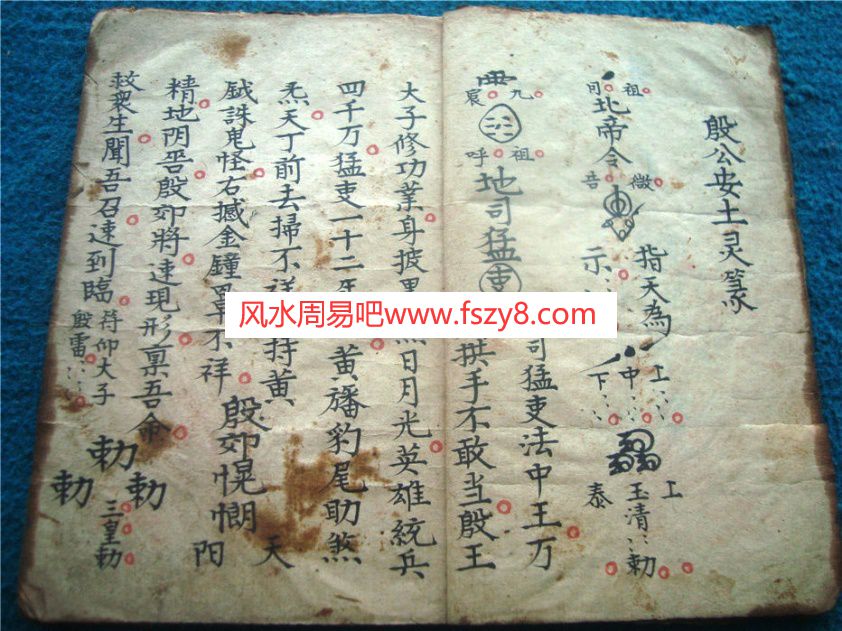 殷公安土灵篆
祖司
北帝令
微吿
指天為
示
上
中
下
上
玉清
泰
勅
司猛吏法中王万
九
祖呼
地司猛吏
拱手不敢当殷王
大子修功業身披黑
日月光英雄統兵
四千万猛吏一十二
黄旛豹尾助煞
炁天丁前去掃不祥
持黄
天
鉞誅鬼怪右撼金鐘罩不祥
殷郊愰惘
阳
精地閃
殷郊將速現形禀吾命
救衆生聞吾召速到臨
符仰大子
殷雷
勅
勅
勅
三皇勅
风水周易吧www.fszy8.com